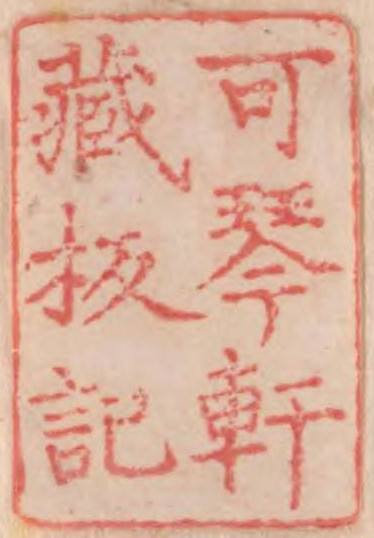 可琴軒
藏板記